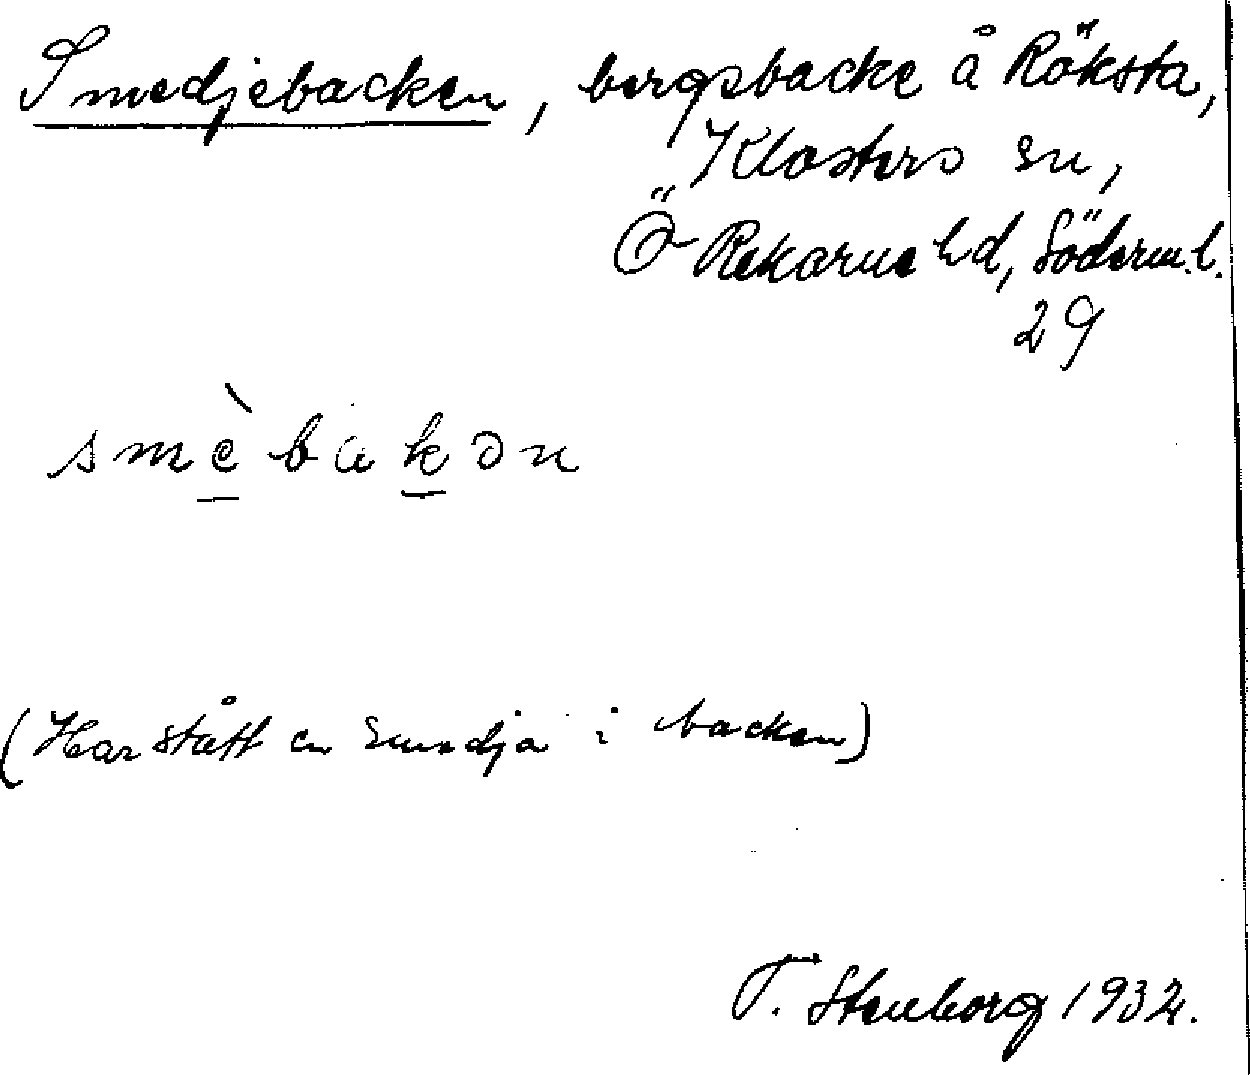 Smedjebacken, bergsbacke å Röksta,
Klosters sn,
Ö Rekarne hd, Söderm.l.
29
smèbakən
(Har stått en smedja i backen)
T. Stenborg 1932.